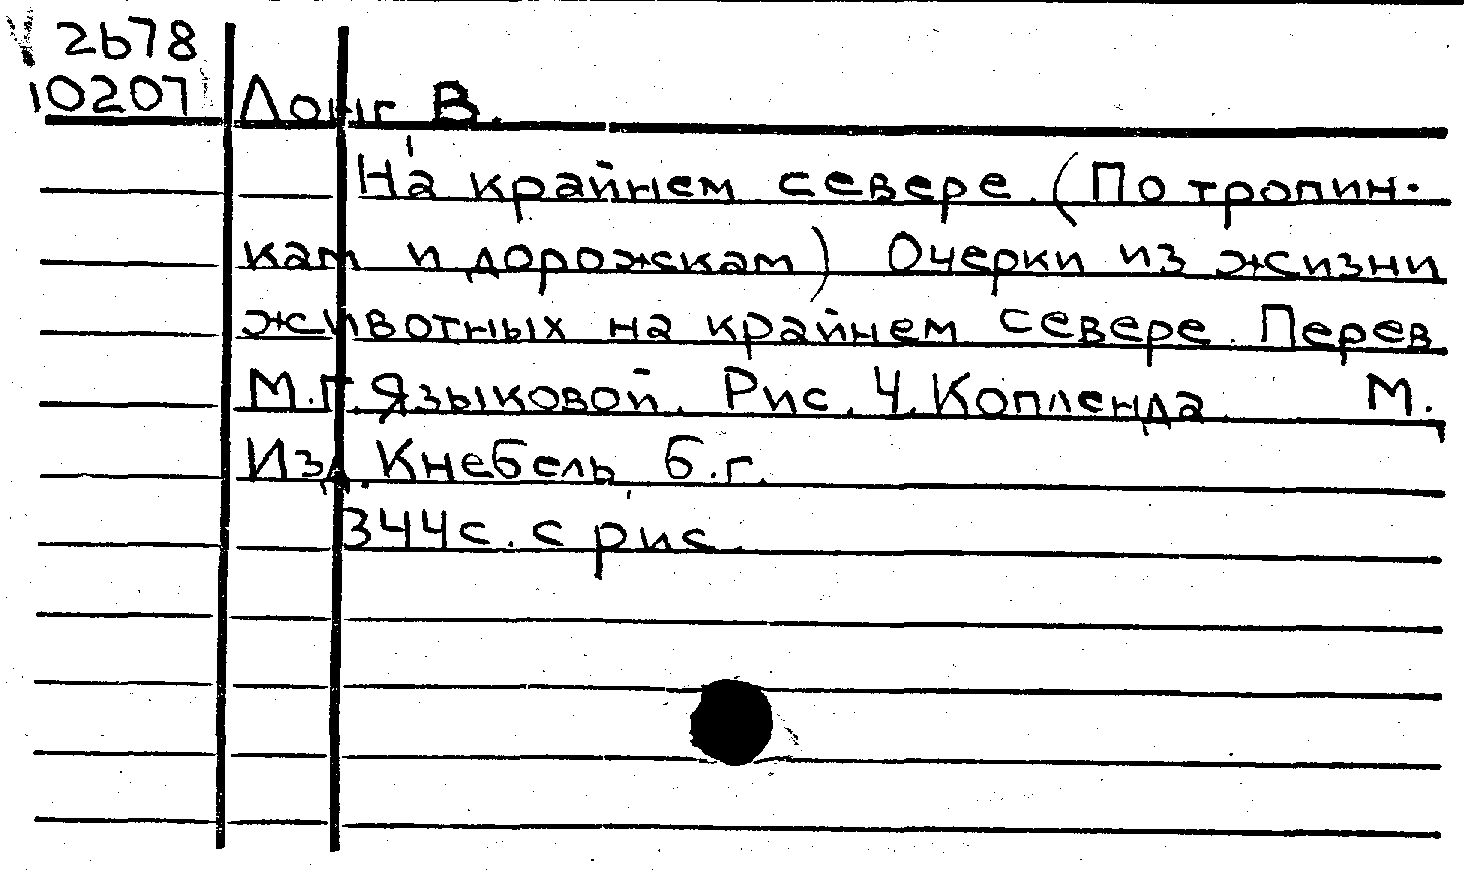 2b78
10207
Лонг В.
На крайнем севере. (По тропин-
кам и дорожкам) Очерки из жизни
животных на крайнем севере. Перев
М.Г. Языковой. Рис. Ч. Копленда М.,
Изд. Кнебель, б.г.
344с. с рис.